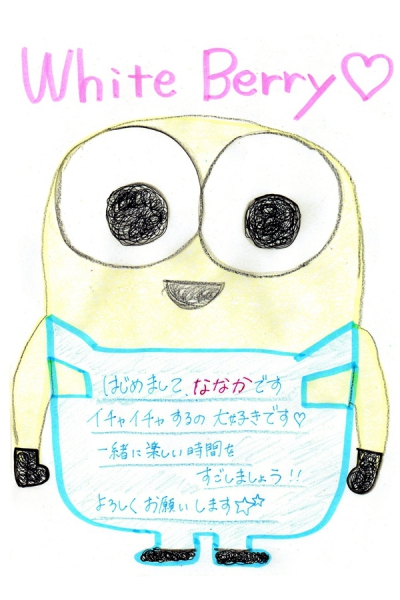 White Berry♡
はじめまして、ななかです
イチャイチャするの大好きです♡
一緒に楽しい時間を
すごしましょう!!
よろしくお願いします☆☆